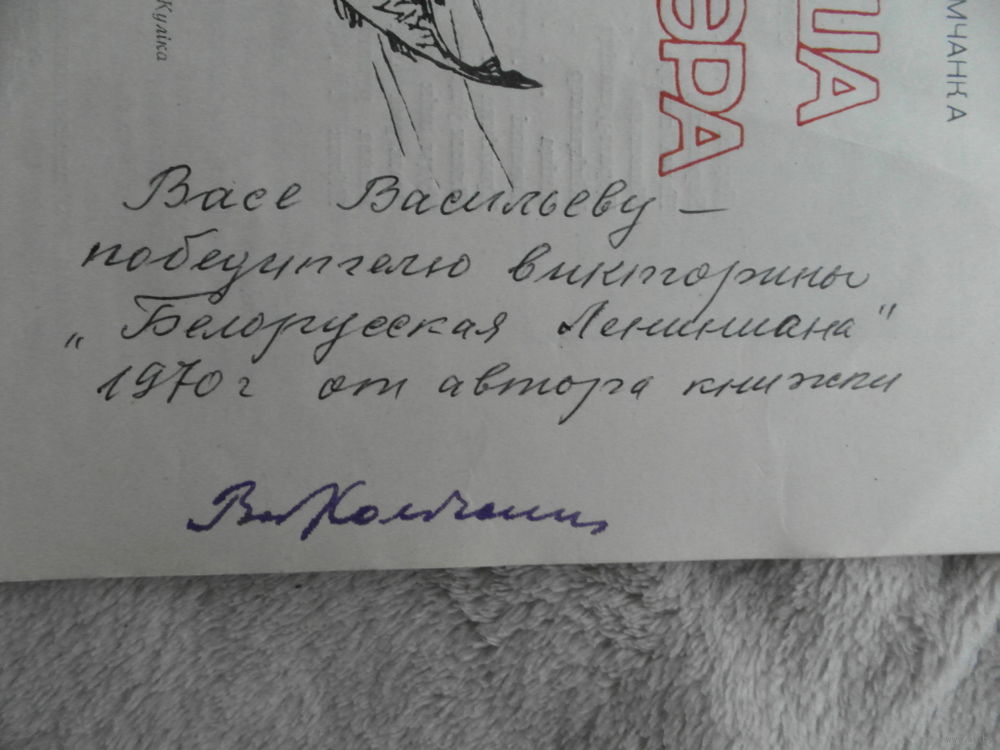 Куліка
ЭРА
ЦА
МЧАНКА
Васе Васильеву —
победителю викторины
„Белорусская Лениниана"
1970 г от автора книжки